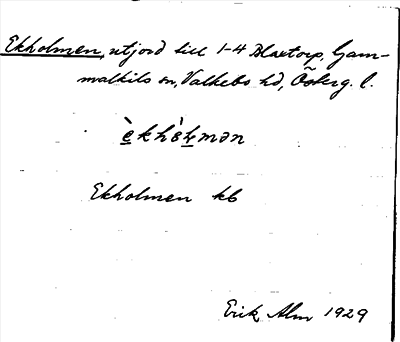 Ekholmen, utjord till 1-4 Blaxtorp, Gam-
malkils sn, Valkebo hd, Österg. l.
èkhòḷmən
Ekholmen kb
Erik Alm 1929